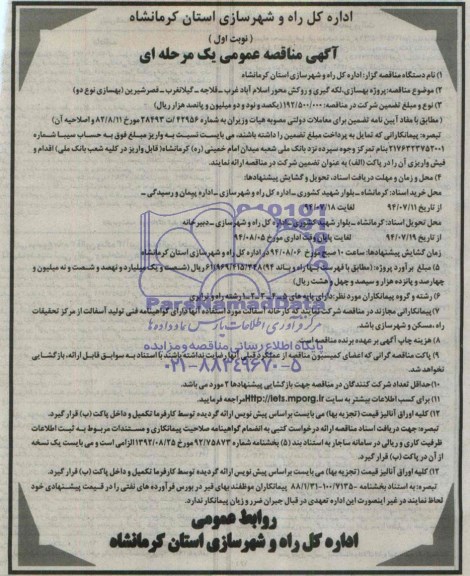 اداره کل راه و شهرسازی استان کرمانشاه
( نوبت اول )
آگهی مناقصه عمومی یک مرحله ای
۱) نام دستگاه مناقصه گزار: اداره کل راه و شهرسازی استان کرمانشاه
۲) موضوع مناقصه: پروژه بهسازی، لکه گیری و روکش محور اسلام آباد غرب ـ قلاجه ـ گیلانغرب ـ قصرشیرین (بهسازی نوع دو)
۳) نوع و مبلغ تضمین شرکت در مناقصه: ۱۹۲/۵۰۰/۰۰۰ (یکصد و نود و دو میلیون و پانصد هزار ریال)
(مطابق با مفاد آیین نامه تضمین برای معاملات دولتی مصوبه هیات وزیران به شماره ۴۲۹۵۶/ت ۲۸۴۹۳ مورخ ۸۲/۸/۱۱ و اصلاحیه آن)
تبصره: پیمانکارانی که تمایل به پرداخت مبلغ تضمین را داشته باشند، می بایست نسبت به واریز مبلغ فوق به حساب سیبا شماره
۲۱۷۶۳۲۲۷۵۲۰۰۱ بنام تمرکز وجوه سپرده نزد بانک ملی شعبه میدان امام خمینی (ره) کرمانشاه( قابل واریز در کلیه شعب بانک ملی) اقدام و
فیش واریزی آن را در پاکت (الف) به عنوان تضمین شرکت در مناقصه ارائه نمایند.
۴) محل و زمان و مهلت دریافت اسناد، تحویل و گشایش پیشنهادها:
محل خرید اسناد: کرمانشاه ـ بلوار شهید کشوری ـ اداره کل راه و شهرسازی ـ اداره پیمان و رسیدگی ـ
از تاریخ ۹۴/۰۷/۱۱ لغایت ۹۴/۰۷/۱۸
محل تحویل اسناد: کرمانشاه ـ بلوار شهید کشوری ـ اداره کل راه و شهرسازی ـ دبیرخانه
از تاریخ ۹۴/۰۷/۱۹ لغایت پایان وقت اداری مورخ ۹۴/۰۸/۰۵
زمان گشایش پیشنهادها: ساعت ۱۰ صبح مورخ ۹۴/۰۸/۰۶ در اداره کل راه و شهرسازی استان کرمانشاه
۵) مبلغ برآورد پروژه: (مطابق با فهرست بها راه و باند ۹۴) ۶۱/۹۶۹/۴۱۵/۳۴۸ ریال (شصت و یک میلیارد و نهصد و شصت و نه میلیون و
چهارصد و پانزده هزار و سیصد و چهل و هشت ریال)
۶) رشته و گروه پیمانکاران مورد نظر: دارای پایه های ۵ـ۴ـ۳ـ۲ـ۱ رشته راه و ترابری
۷) پیمانکارانی مجازند در مناقصه شرکت نمایند که کارخانه آسفالت مورد استفاده آنها دارای گواهینامه فنی تولید آسفالت از مرکز تحقیقات
راه، مسکن و شهرسازی باشد.
۸) هزینه چاپ آگهی بر عهده برنده مناقصه است.
۹) پاکت مناقصه گرانی که اعضای کمیسیون مناقصه از عملکرد قبلی آنها رضایت نداشته باشند با استناد به سوابق قابل ارائه، بازگشایی
نخواهد شد.
۱۰) حداقل تعداد شرکت کنندگان در مناقصه جهت بازگشایی پیشنهادها ۲ مورد می باشد.
۱۱) برای کسب اطلاعات بیشتر به سایت Http://iets.mporg.ir مراجعه فرمایید.
۱۲) کلیه اوراق آنالیز قیمت (تجزیه بها) می بایست براساس پیش نویس ارائه گردیده توسط کارفرما تکمیل و داخل پاکت (ب) قرار گیرد.
تبصره: جهت دریافت اسناد مناقصه ارائه درخواست کتبی به انضمام گواهینامه صلاحیت پیمانکاری و مستندات مربوط به ثبت اطلاعات
ظرفیت کاری و ریالی در سامانه ساجار به استناد بند (۵) بخشنامه شماره ۹۲/۷۵۸۷۳ مورخ ۱۳۹۲/۰۸/۲۵ الزامی است و می بایست یک نسخه
از آن در پاکت (ب) قرار گیرد.
۱۲) کلیه اوراق آنالیز قیمت (تجزیه بها) می بایست براساس پیش نویس ارائه گردیده توسط کارفرما تکمیل و داخل پاکت (ب) قرار گیرد.
تبصره: به استناد بخشنامه ۱۰۰/۷۱۳۵- ۸۸/۱/۳۱ پیمانکاران موظفند بهای قیر در بورس فرآورده های نفتی را در قیمت پیشنهادی خود
لحاظ نمایند در غیر اینصورت این اداره تعهدی در قبال جبران ضرر و زیان پیمانکار ندارد.
روابط عمومی
اداره کل راه و شهرسازی استان کرمانشاه
ParsNamadData
پایگاه اطلاع رسانی مناقصه و مزایده
۰۲۱-۸۸۳۴۹۶۷۰-۵